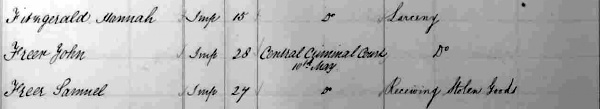 Fitzgerald Hannah Imp 15 Do Larceny
Freer John Imp 28 Central Criminal Court Do
10th May
Freer Samuel Imp 27 Do Receiving Stolen Goods